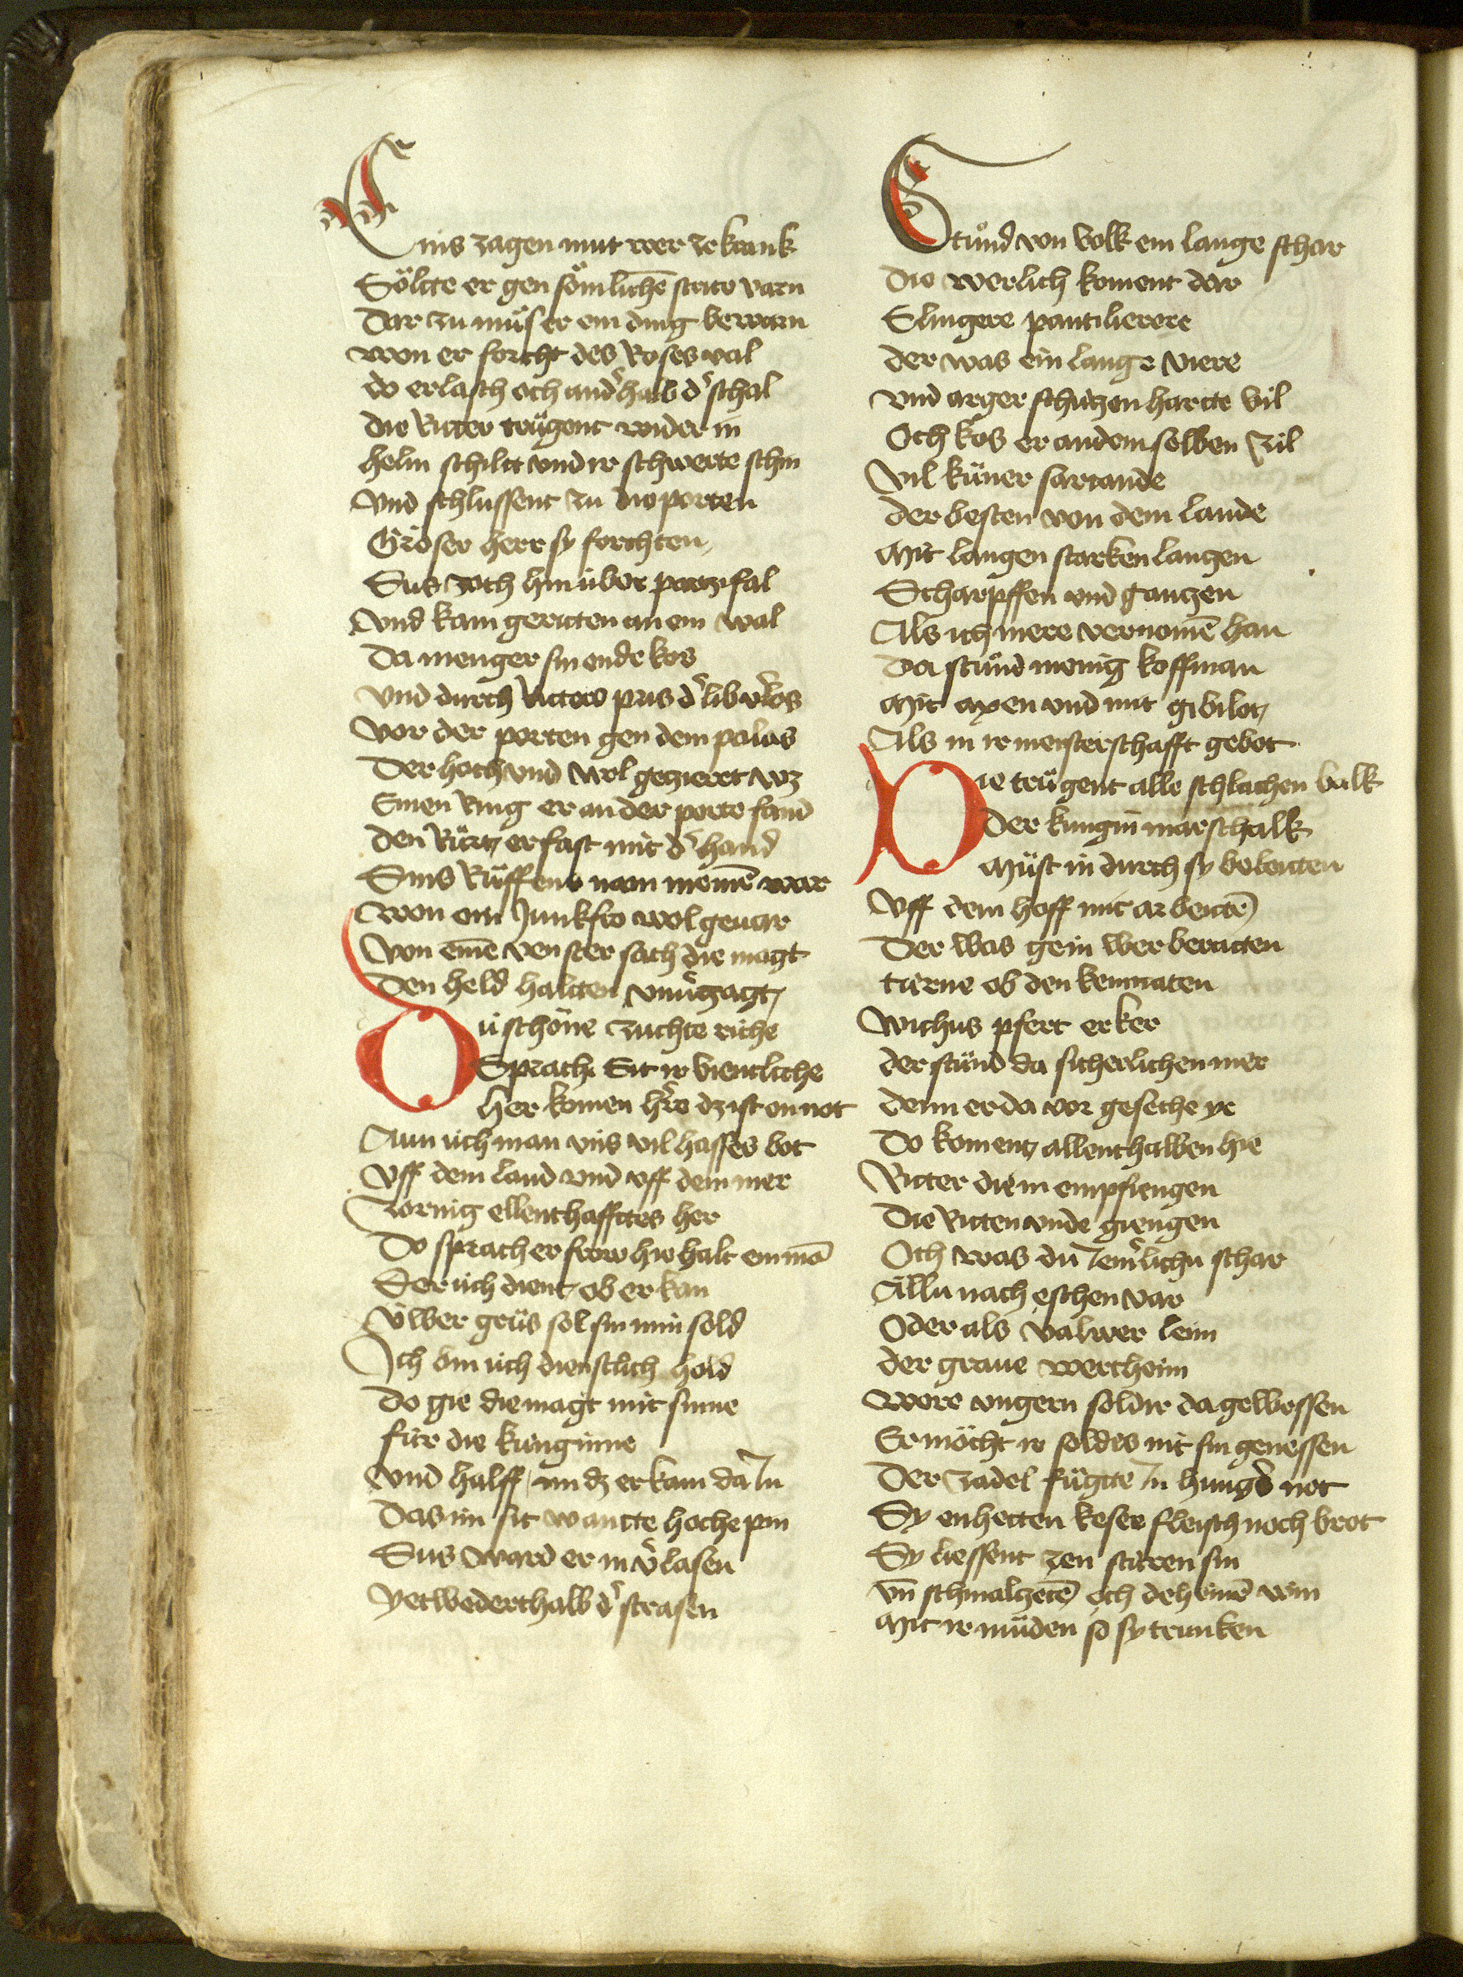 Eins zagen mut wer ze krank
Sölte er gen sömlichē strite varn
Dar zu muͦs er ein ding bewarn
won er forcht des Roses val
do erlasch och andˢhalb dˢ schal
die Ritter truͤgent wider in
helm schiltt vnd ir schwerte schin
Vnd schlussent zu die porten
Gröser herr sy forchten
Sus zoch hin über partzifal
Vnd kam geritten an ein wal
Da menger sin ende kos
vnd durch Ritters pris dˢ lib vˢlos
Vor der porten gen dem palas
Der hoch vnd wol gezieret wz
Einen Ring er an der porte fand
den Ruͤrtz er fast mit dˢ hand
Sins Ruͤffens nam niemē war
Won ein Junkfro wol geuar
Von einē venster sach die magt
Den held haltten vnuˢzagt
Dü schöne zuchte riche
Sprach Sit ir vientliche
Her komen hˢre dz ist on not
Aun üch man vns vil hasses bot
Vff dem land vnd vff dem mer
Zornig ellenthafftes her
Do sprach er frow hie halt ein mā
Der üch dient ob er kan
Üwer gruͤs sol sin min sold
Ich bin üch dienstlich hold
Do gie die magt mit sinne
für die künginne
Vnd halff im dz er kam da In
Das im sit wantte hoche pin
Sus ward er in vˢlasen
Yetwederthalb dˢ strasen
Stuͦnd von volk ein lange schar
Die werlich koment dar
Slingere pantilierere
der was ein lange viere
vnd arger schützen hartte vil
Och kos er an dem selben zil
Vil kuͤner sariande
der besten von dem lande
Mit langen starken lanzen
Scharpffen vnd gantzen
Als ich mere vernomē han
Da stuͦnd menig koffman
Mit axen vnd mit gibilot
Als in ir meisterschafft gebot
Die truͤgent alle schlachen balk
Der küngin marschalk
Muͤst in durch sy beleitten
Vff dem hoff mit arbeitē
Der was gein wer beratten
türne ob den kemnaten
Wichus pfert erker
der stuͦnd da sicherlichen mer
denn er da vor gesehe ye
Do koment allenthalben hie
Ritter die in empfiengen
Die Ritten vnde giengen
Och was dü Jemˢlichü schar
Ällü nach eschen var
Oder als valwer leim
der graue wertheim
were vngern soldir da gewessen
Er möcht ir soldes nit sin genessen
Der zadel fuͤgtte In hungˢs not
Sy enhetten keser fleisch noch brot
Sy liessent zen stüren sin
vn̄ schmaltzetē och deheinē win
Mit ir münden so sy trunken